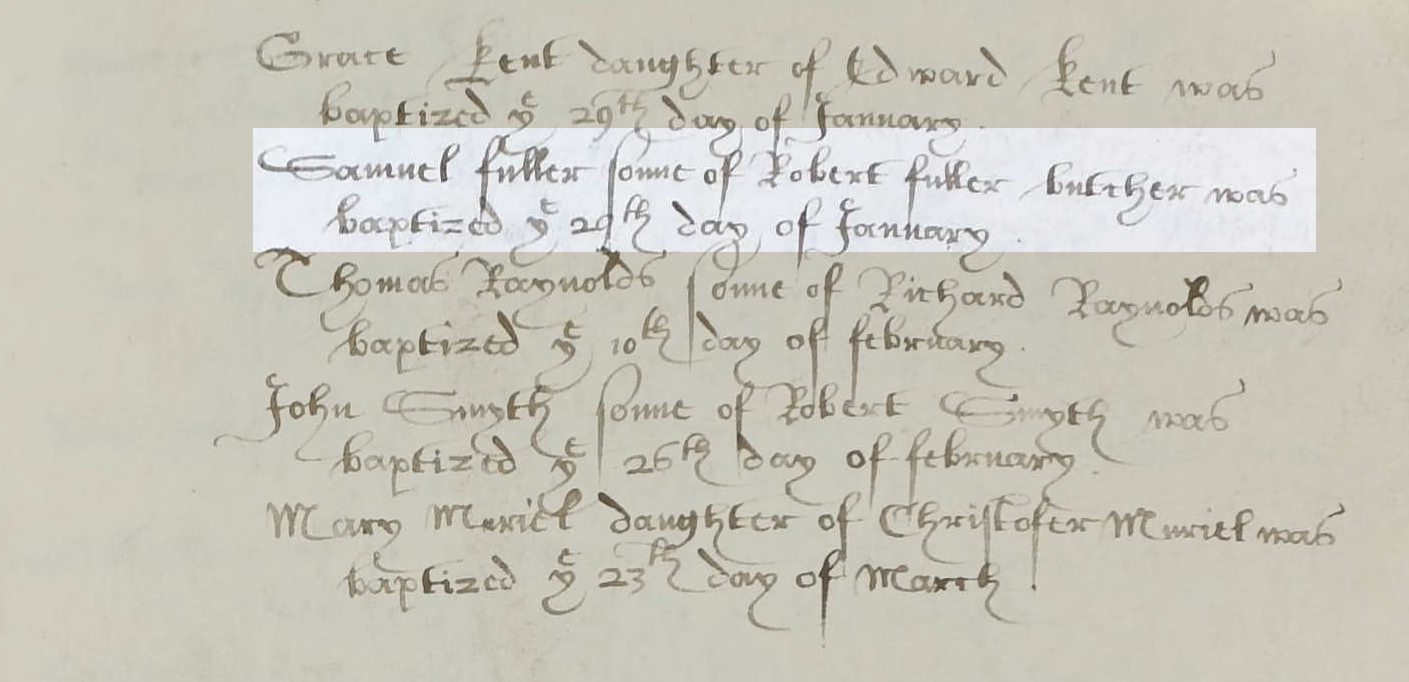 Grace Kent daughter of Edward Kent was
baptized yᵉ 29ᵗʰ day of January.
Samuel fuller sonne of Robert fuller butcher was
baptized yᵉ 29ᵗʰ day of January.
Thomas Raynolds sonne of Richard Raynolds was
baptized yᵉ 10ᵗʰ day of february.
John Smyth sonne of Robert Smyth was
baptized yᵉ 26ᵗʰ day of february.
Mary Muriel daughter of Christofer Muriel was
baptized yᵉ 23ᵗʰ day of March.